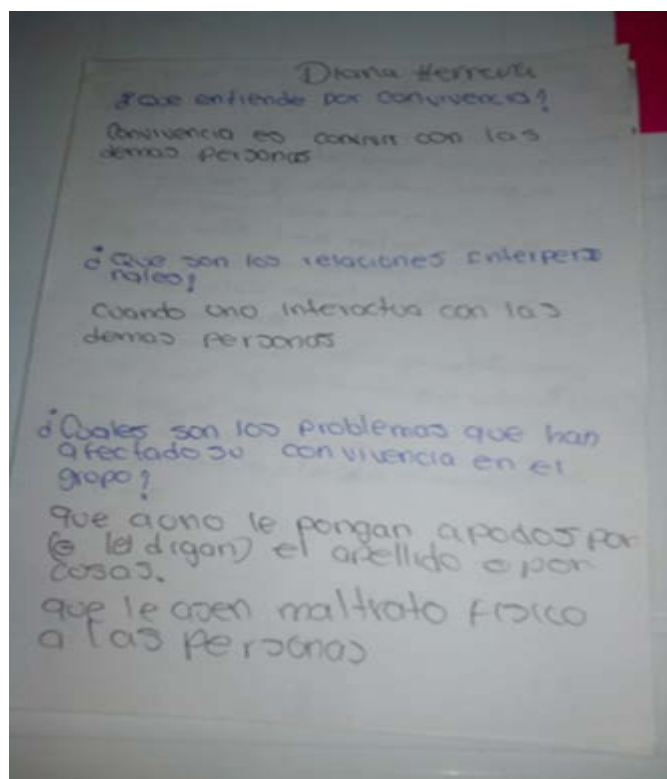 Diana Herrera
¿Que entiende por convivencia?
Convivencia es convivir con las
demas personas
¿Que son las relaciones interperso
nales?
Cuando uno interactua con las
demas personas
¿Cuales son los problemas que han
afectado su convivencia en el
grupo?
que auno le pongan apodos por
(o le digan) el apellido o por
cosas.
que le agen maltrato fisico
a las personas